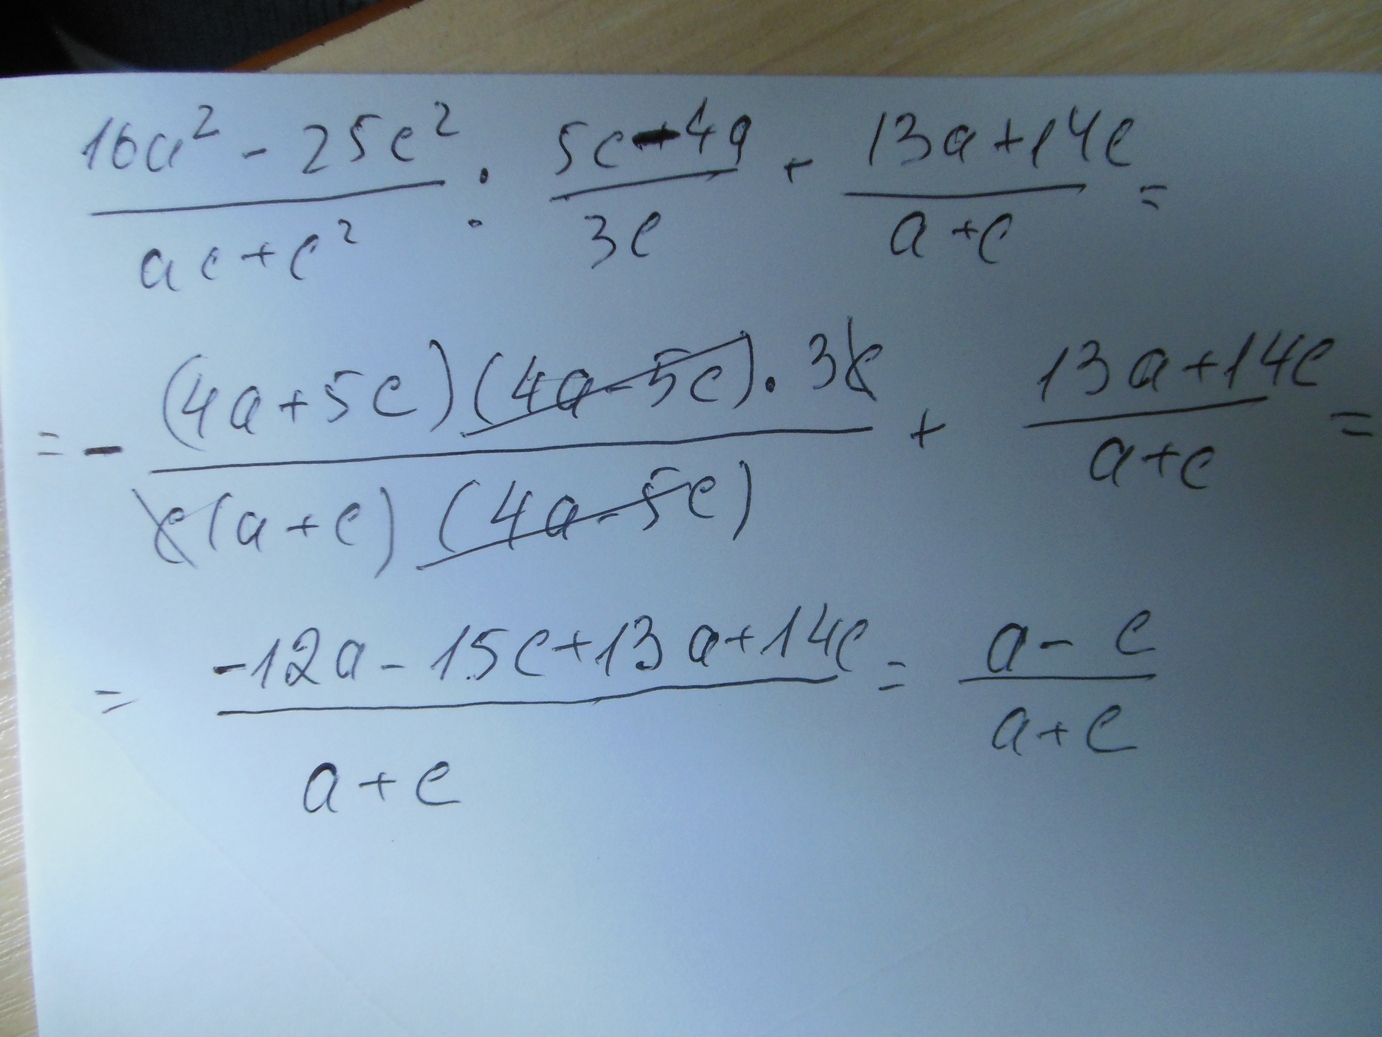 (16a² - 25c²)/(ac + c²) : (5c - 4a)/(3c) + (13a + 14c)/(a + c) =
= - ((4a + 5c)(4a - 5c) · 3c)/(c(a + c)(4a - 5c)) + (13a + 14c)/(a + c) =
= (-12a - 15c + 13a + 14c)/(a + c) = (a - c)/(a + c)